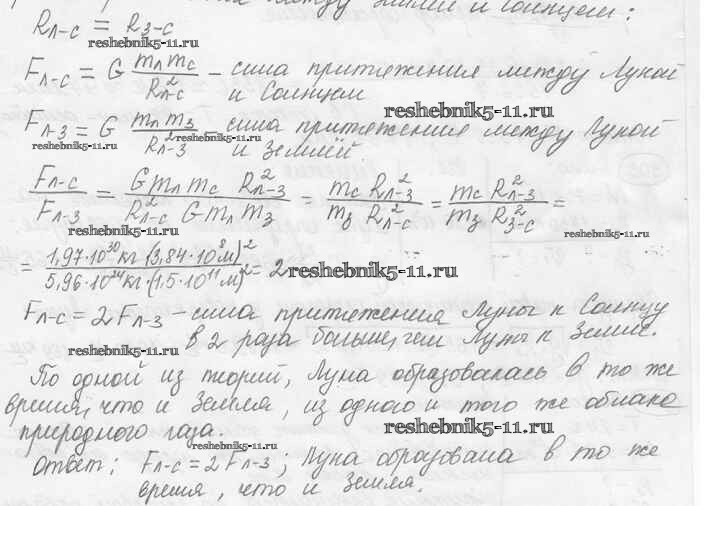 между Землей и Солнцем:
Rл-с = Rз-с
reshebnik5-11.ru
Fл-с = G mл mс / R²л-с – сила притяжения между Луной
и Солнцем
reshebnik5-11.ru
Fл-з = G mл mз / R²л-з – сила притяжения между Луной
reshebnik5-11.ru
reshebnik5-11.ru
и Землёй
Fл-с / Fл-з = G mл mс R²л-з / R²л-с G mл mз = mс R²л-з / mз R²л-с = mс R²л-з / mз R²з-с =
reshebnik5-11.ru
reshebnik5-11.ru
= 1,97·10³⁰кг·(3,84·10⁸м)² / 5,96·10²⁴кг·(1,5·10¹¹м)² = 2
reshebnik5-11.ru
Fл-с = 2Fл-з – сила притяжения Луны к Солнцу
в 2 раза больше, чем Луны к Земле.
reshebnik5-11.ru
По одной из теорий, Луна образовалась в то же
время, что и Земля, из одного и того же облака
природного газа.
reshebnik5-11.ru
reshebnik5-11.ru
Ответ: Fл-с = 2Fл-з; Луна образована в то же
время, что и Земля.